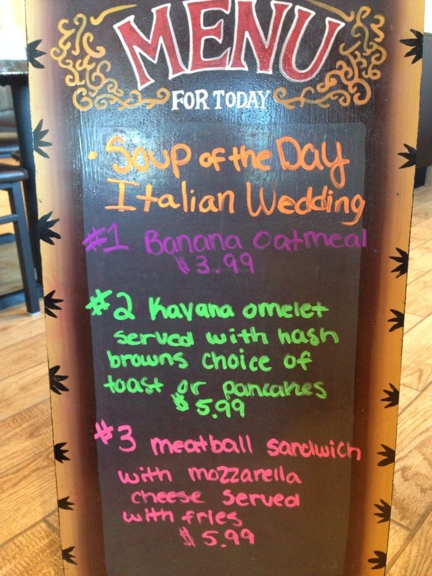 MENU
FOR TODAY
• Soup of the Day
Italian Wedding
#1 Banana Oatmeal
$3.99
#2 Kavana omelet
served with hash
browns choice of
toast or pancakes
$5.99
#3 meatball sandwich
with mozzarella
cheese served
with fries
$5.99